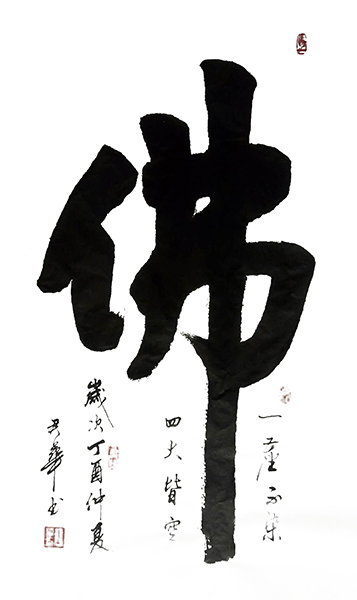 佛
一塵不染
四大皆空
歲次丁酉仲夏